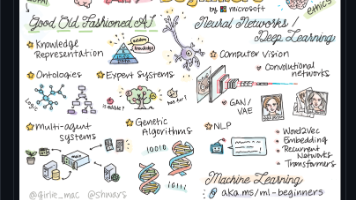 AI
Beginners
by microsoft
ethics
Good Old Fashioned AI
Neural Networks /
Deep Learning
Knowledge
Representation
Computer Vision
Convolutional
networks
Ontologies
Expert Systems
GAN/
VAE
Multi-agent
systems
Genetic
Algorithms
NLP
Word2Vec
Embedding
Recurrent
Networks
Transformers
10010
Machine Learning
@girlie_mac
aka.ms/ml-beginners